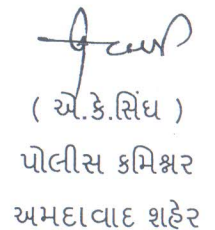 ( એ.કે.સિંઘ )
પોલીસ કમિશ્નર
અમદાવાદ શહેર